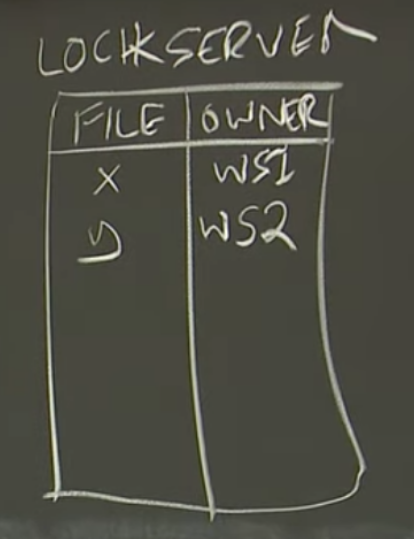 LOCK SERVER
FILE OWNER
X WS1
y WS2